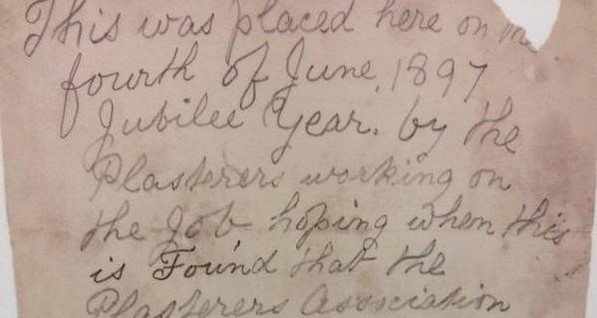 This was placed here on the
fourth of June, 1897
Jubilee Year. by the
Plasterers working on
the Job hoping when this
is Found that the
Plasterers Association